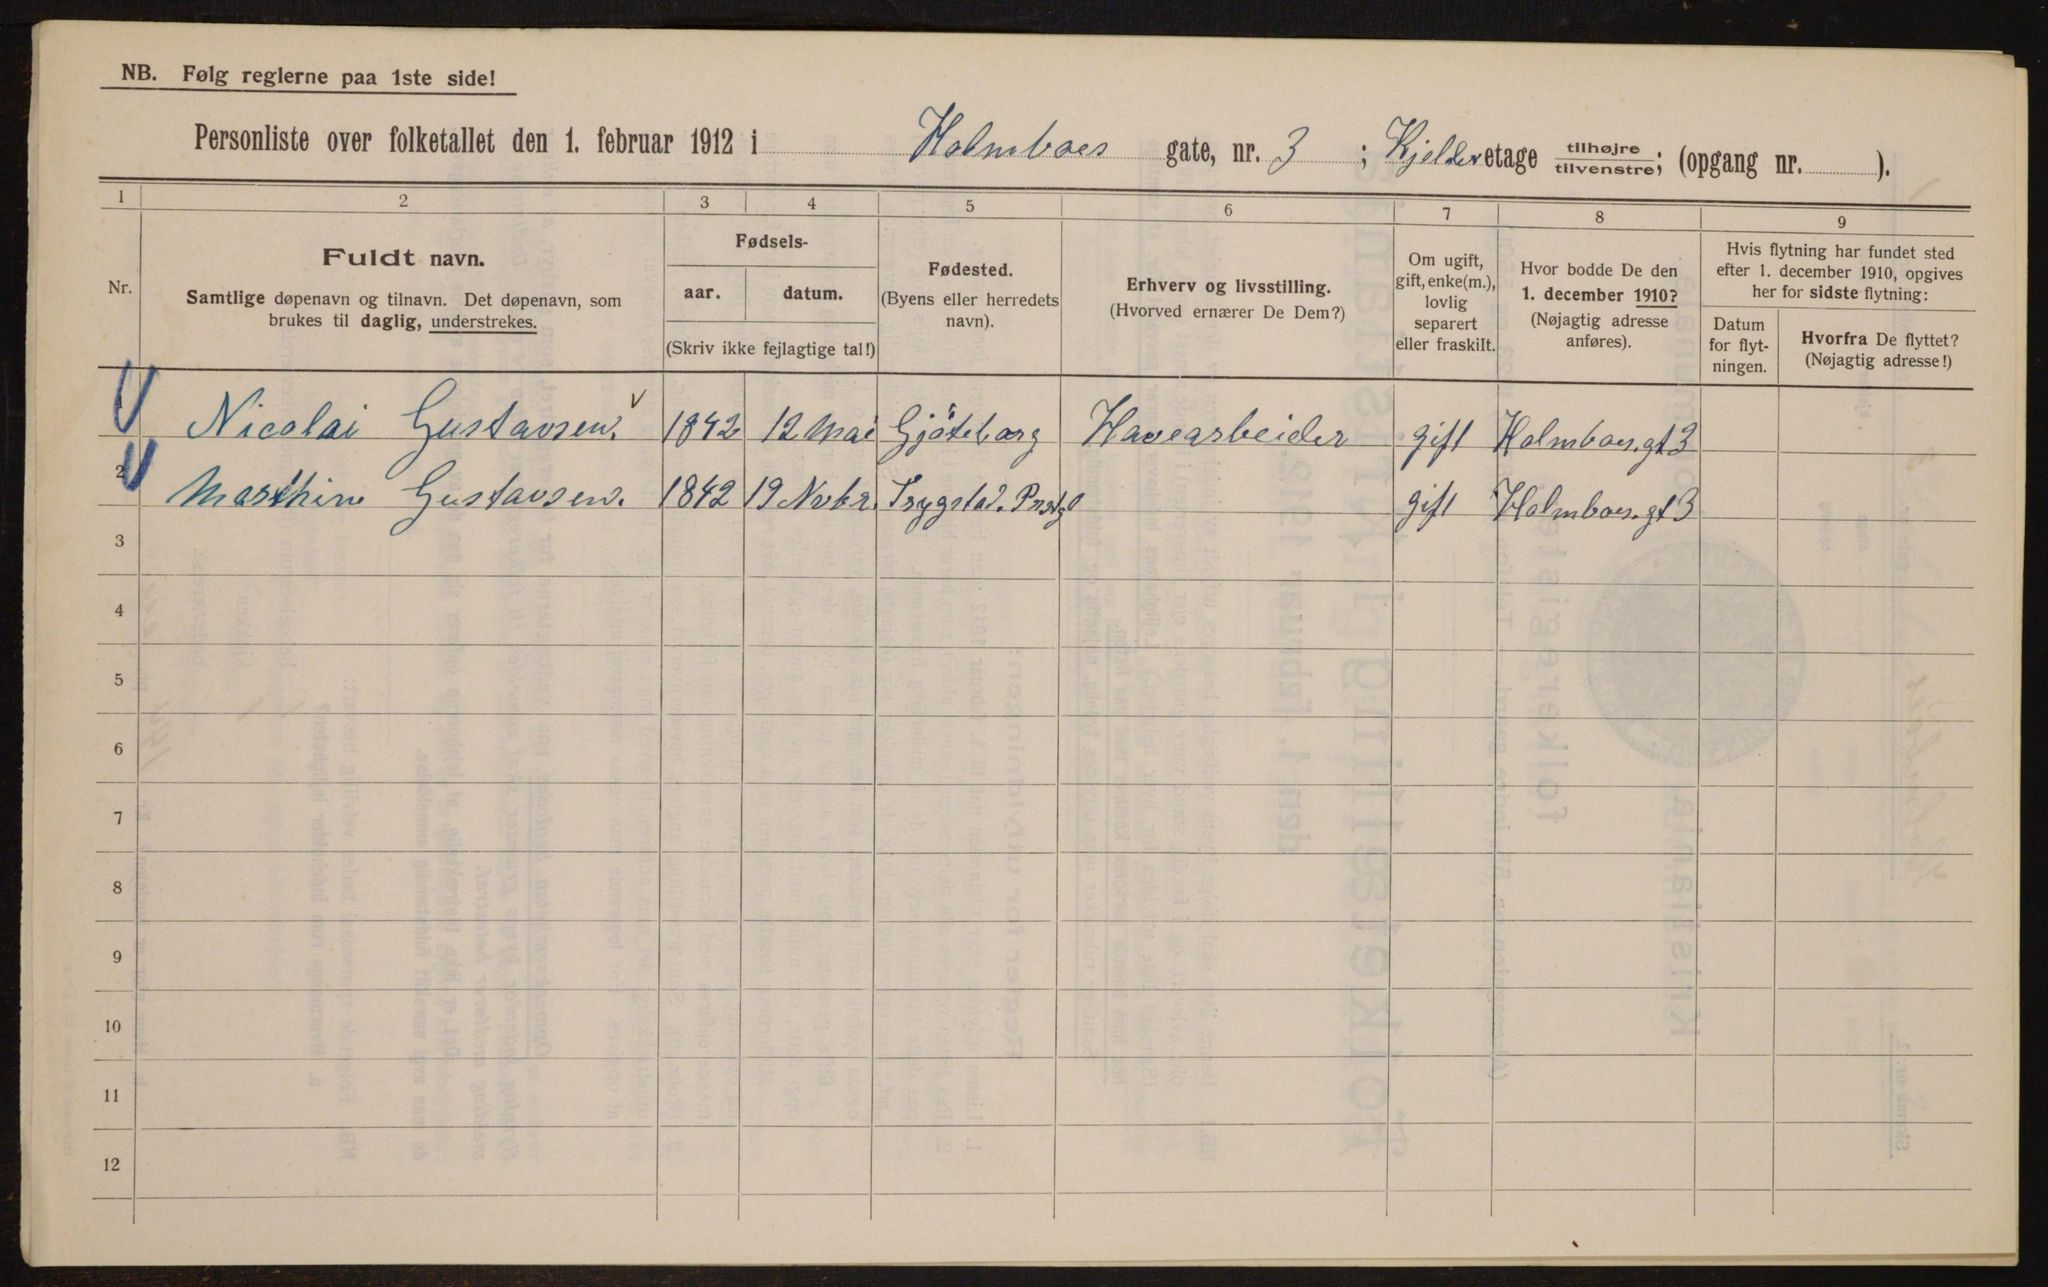 NB. Følg reglerne paa 1ste side!
Personliste over folketallet den 1. februar 1912 i Holmboes gate, nr. 3 ; Kjelder etage tilhøjre tilvenstre; (opgang nr. ).
1 2 3 4 5 6 7 8 9
Nr.
Fuldt navn.
Samtlige døpenavn og tilnavn. Det døpenavn, som
brukes til daglig, understrekes.
Fødsels-
aar. datum.
(Skriv ikke fejlagtige tal!)
Fødested.
(Byens eller herredets
navn).
Erhverv og livsstilling.
(Hvorved ernærer De Dem?)
Om ugift,
gift, enke(m.),
lovlig
separert
eller fraskilt.
Hvor bodde De den
1. december 1910?
(Nøjagtig adresse
anføres).
Hvis flytning har fundet sted
efter 1. december 1910, opgives
her for sidste flytning:
Datum
for flyt-
ningen.
Hvorfra De flyttet?
(Nøjagtig adresse!)
Nicolai Gustavsen. 1842 12 Mai Gjøteborg Havearbeider gift Holmboes.gt 3
2 Marthine Gustavsen. 1842 19 Nvbr. Trygstad. gift Holmboes.gt 3
3
4
5
6
7
8
9
10
11
12